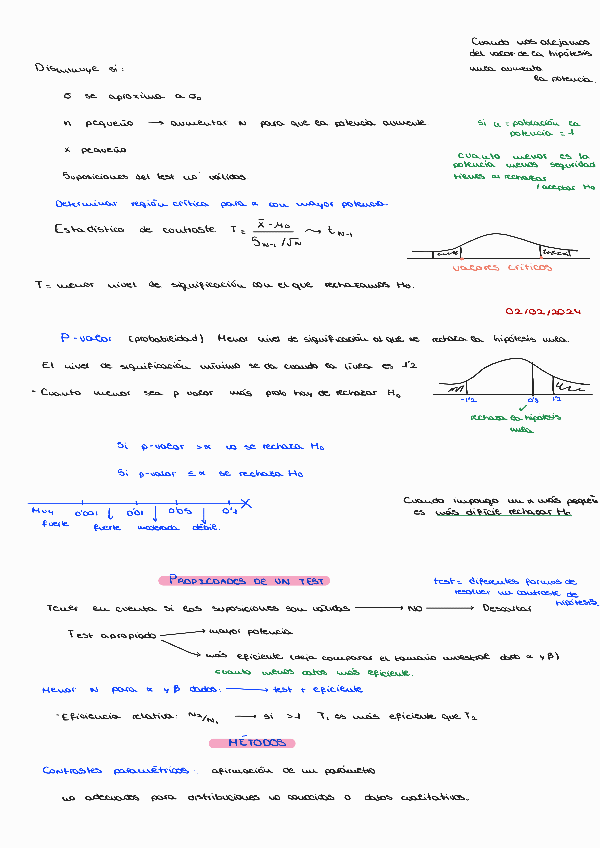 Cuando nos alejamos
del valor de la hipótesis
nula aumenta
la potencia.
Disminuye si:
σ se aproxima a σ₀
n pequeño → aumentar N para que la potencia aumente
si n = población la
potencia = 1
x pequeño
cuanto menor es la
potencia menos seguridad
tienes al rechazar
/aceptar H₀
Suposiciones del test no válidas
Determinar región crítica para α con mayor potencia.
Estadístico de contraste T = (x̄ - μ₀) / (S_{N-1} / √N) ⤳ t_{N-1}
valores críticos
T = menor nivel de significación con el que rechazamos H₀.
02/02/2024
P-valor (probabilidad) Menor nivel de significación al que se rechaza la hipótesis nula.
El nivel de significación mínimo se da cuando la línea es 1'2
-1'2 0'8 1'2
- Cuanto menor sea p valor más prob hay de rechazar H₀
✓
rechaza la hipótesis
nula
Si p-valor > α no se rechaza H₀
Si p-valor ≤ α se rechaza H₀
Muy 0'001 ↓ 0'01 ↓ 0'05 ↓ 0'1
fuerte fuerte moderada débil.
Cuando impongo un α más pequeñ
es más difícil rechazar H₀
PROPIEDADES DE UN TEST
test = diferentes formas de
resolver un contraste de
hipótesis.
Tener en cuenta si las suposiciones son válidas → NO → Descartar
Test apropiado → mayor potencia
→ más eficiente (deja comparar el tamaño muestral dado α y β)
cuanto menos datos más eficiente.
Menor N para α y β dados: → test + eficiente
·Eficiencia relativa: N₂/N₁ → si >1 T₁ es más eficiente que T₂
MÉTODOS
Contrastes paramétricos: afirmación de un parámetro
no adecuados para distribuciones no conocidas o datos cualitativos.